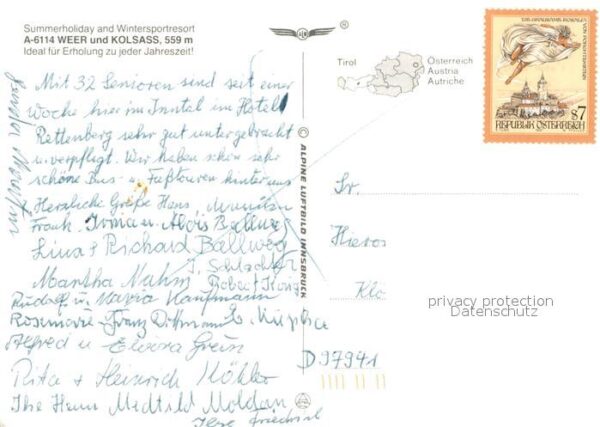 Summerholiday and Wintersportresort
A-6114 WEER und KOLSASS, 559 m
Ideal für Erholung zu jeder Jahreszeit!
Mit 32 Senioren sind seit einer
Woche hier im Inntal im Hotel
Rettenberg sehr gut untergebracht
u. verpflegt. Wir haben schon sehr
schöne Bus- u. Fußtouren hinter uns
Herzliche Grüße Hans
Frank. Irma u. Alois Ballweg
Lina + Richard Ballweg
Martha Nahm
Robert König
Rudolf u. Maria Kaufmann
Rosemarie Franz Dittmann
Alfred u. Elvira Grein
Rita + Heinrich Köhler
Ihre Henn Medtild Moldan
Ilse Friedrich
ALPINE LUFTBILD INNSBRUCK
Tirol
Österreich
Austria
Autriche
VON FORCHTENSTEIN
S 7
REPUBLIK ÖSTERREICH
Sr.
Hieros
Klö
D 97941
privacy protection
Datenschutz